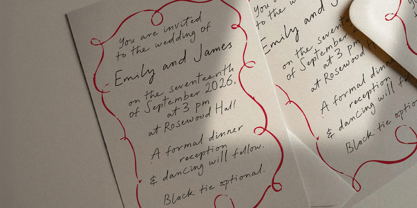 You are invited
to the wedding of
Emily and James
on the seventeenth
of September 2026.
at 3 pm
at Rosewood Hall
A formal dinner
reception
& dancing will follow.
Black tie optional.
You are
to the wed
Emily and
on the sevent
of September
at 3 pm
at Rosewood
A formal dinn
reception
& dancing will fo
Black tie opt